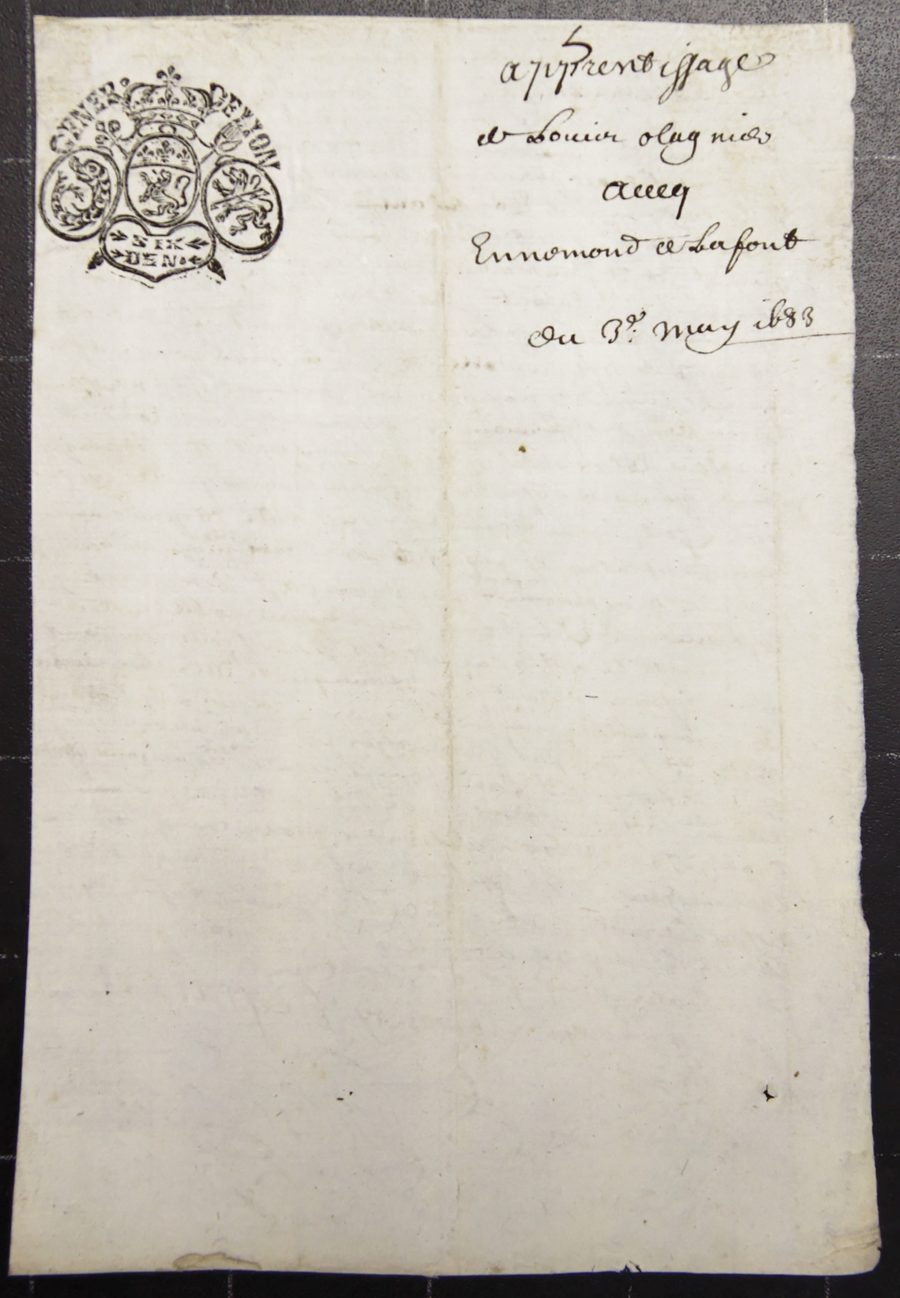 GENER. DE LYON
SIX
DEN.
apprentissage
de Louis olagnier
avecq
Ennemond de Lafont
du 3e. may 1683